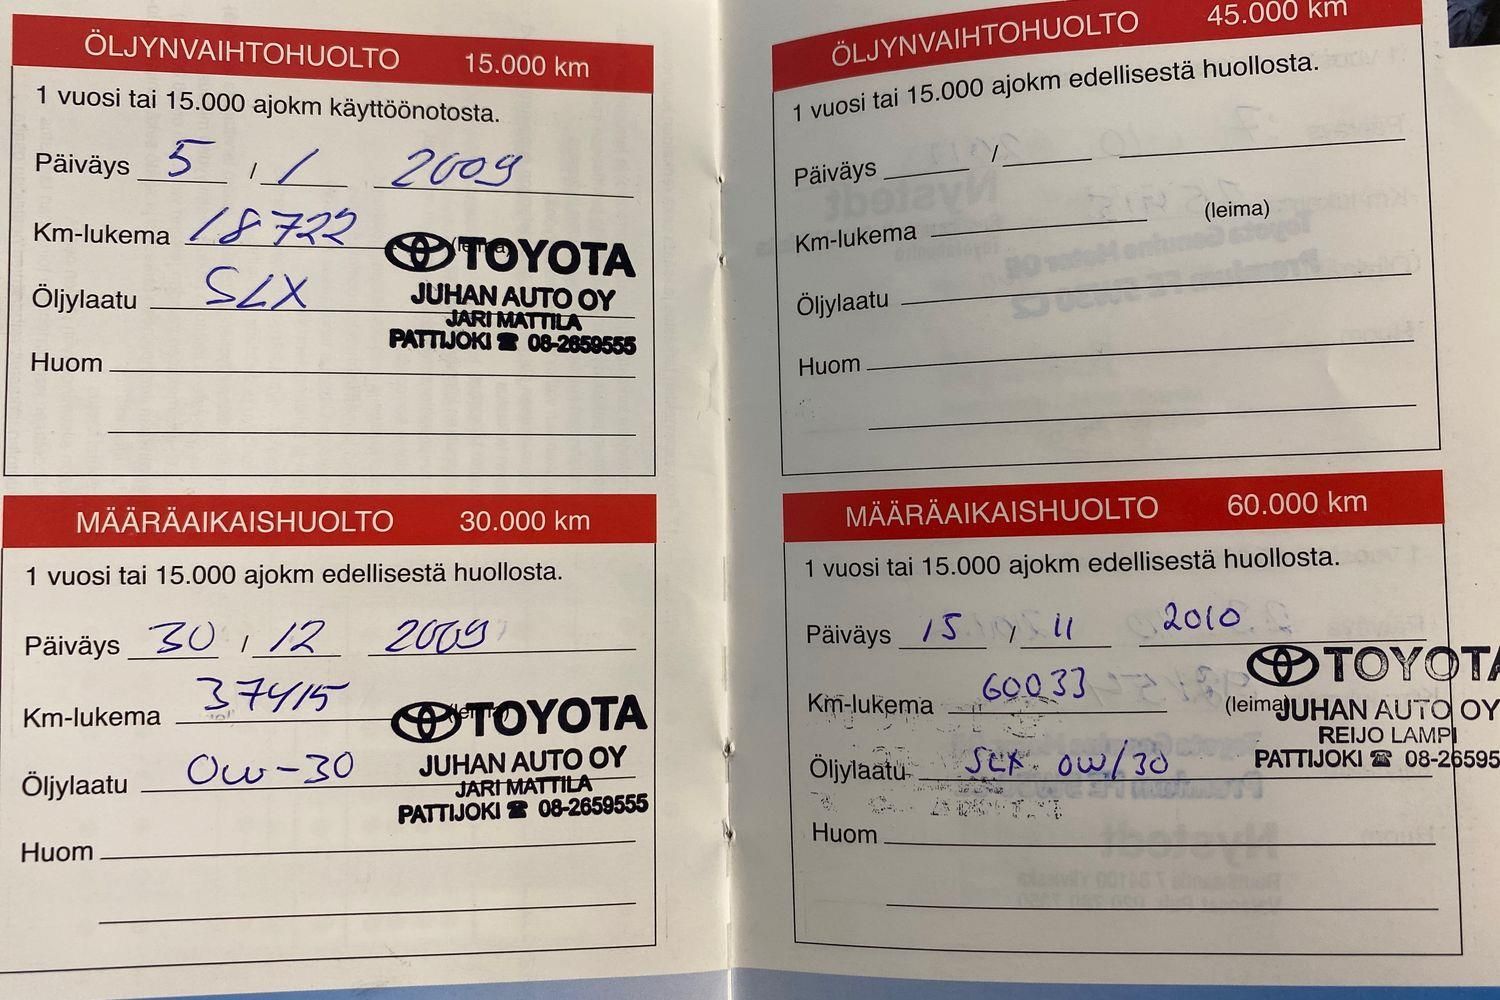 ÖLJYNVAIHTOHUOLTO 15.000 km
1 vuosi tai 15.000 ajokm käyttöönotosta.
Päiväys 5 / 1 2009
Km-lukema 18722
(leima)
TOYOTA
Öljylaatu SLX
JUHAN AUTO OY
JARI MATTILA
PATTIJOKI ☎ 08-2659555
Huom
MÄÄRÄAIKAISHUOLTO 30.000 km
1 vuosi tai 15.000 ajokm edellisestä huollosta.
Päiväys 30 / 12 2009
Km-lukema 37415
(leima)
TOYOTA
Öljylaatu 0w-30
JUHAN AUTO OY
JARI MATTILA
PATTIJOKI ☎ 08-2659555
Huom
ÖLJYNVAIHTOHUOLTO 45.000 km
1 vuosi tai 15.000 ajokm edellisestä huollosta.
Päiväys /
Km-lukema (leima)
Öljylaatu
Huom
MÄÄRÄAIKAISHUOLTO 60.000 km
1 vuosi tai 15.000 ajokm edellisestä huollosta.
Päiväys 15 / 11 2010
TOYOTA
Km-lukema 60033 (leima)
JUHAN AUTO OY
REIJO LAMPI
Öljylaatu SLX 0W/30
PATTIJOKI ☎ 08-26595
Huom